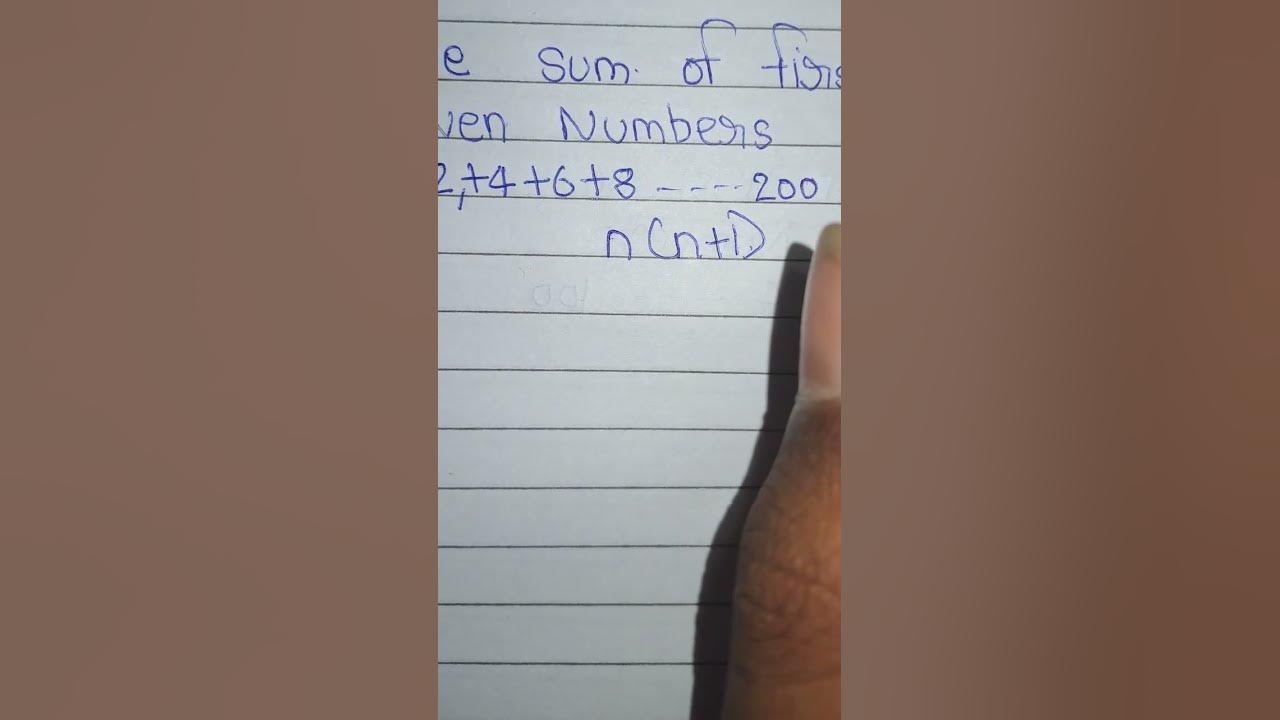 e sum. of firs
ven Numbers
2,+4+6+8 ----200
n(n+1)